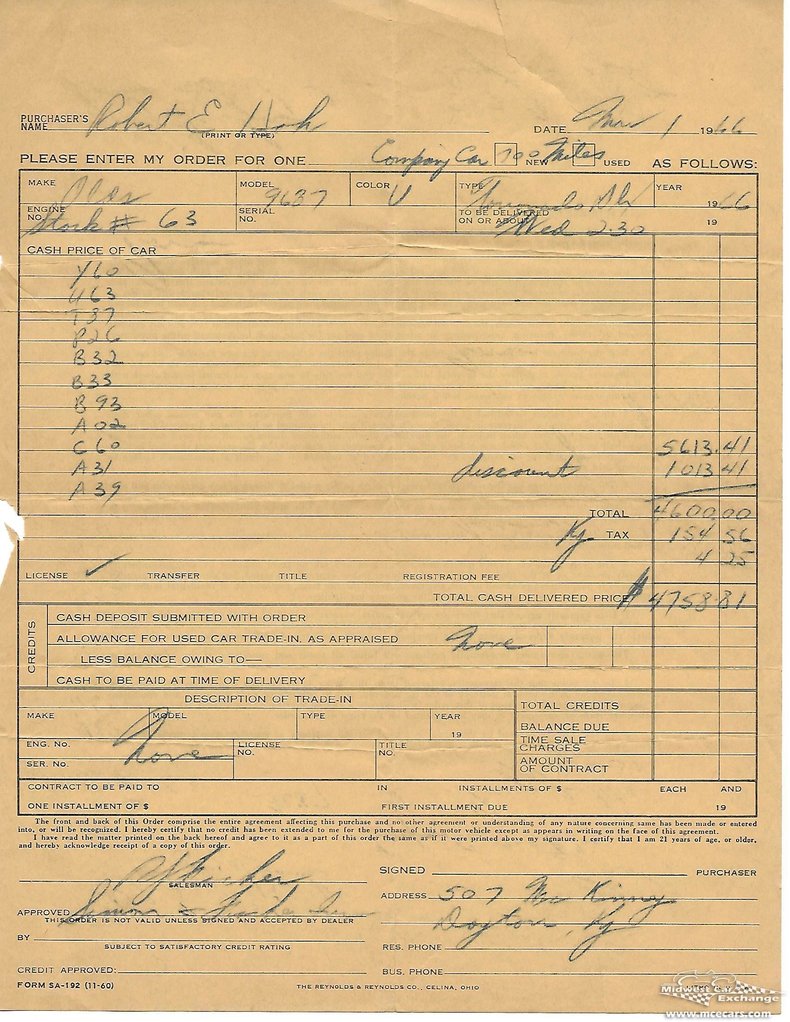 PURCHASER'S NAME Robert E
(PRINT OR TYPE)
DATE Mar 1 1966
PLEASE ENTER MY ORDER FOR ONE Company Car 700 Miles NEW USED AS FOLLOWS:
MAKE Olds MODEL 9637 COLOR U TYPE Toronado Dlx YEAR 1966
ENGINE NO. Stock # 63 SERIAL NO. TO BE DELIVERED ON OR ABOUT Wed 2:30 19
CASH PRICE OF CAR
Y60
U63
T37
P26
B32
B33
B93
A02
C60 5613.41
A31 discount 1013 41
A39
TOTAL 4600.00
Ky TAX 154 56
4 25
LICENSE ✓ TRANSFER TITLE REGISTRATION FEE
TOTAL CASH DELIVERED PRICE $4758.81
CREDITS
CASH DEPOSIT SUBMITTED WITH ORDER
ALLOWANCE FOR USED CAR TRADE-IN, AS APPRAISED None
LESS BALANCE OWING TO—
CASH TO BE PAID AT TIME OF DELIVERY
DESCRIPTION OF TRADE-IN
TOTAL CREDITS
MAKE MODEL TYPE YEAR 19
BALANCE DUE
ENG. No. None LICENSE NO. TITLE NO.
TIME SALE CHARGES
SER. No.
AMOUNT OF CONTRACT
CONTRACT TO BE PAID TO IN INSTALLMENTS OF $ EACH AND
ONE INSTALLMENT OF $ FIRST INSTALLMENT DUE 19
The front and back of this Order comprise the entire agreement affecting this purchase and no other agreement or understanding of any nature concerning same has been made or entered
into, or will be recognized. I hereby certify that no credit has been extended to me for the purchase of this motor vehicle except as appears in writing on the face of this agreement.
I have read the matter printed on the back hereof and agree to it as a part of this order the same as if it were printed above my signature. I certify that I am 21 years of age, or older,
and hereby acknowledge receipt of a copy of this order.
SALESMAN
SIGNED PURCHASER
APPROVED
THIS ORDER IS NOT VALID UNLESS SIGNED AND ACCEPTED BY DEALER
ADDRESS 507 Mc Kinney
Dayton, Ky
BY
SUBJECT TO SATISFACTORY CREDIT RATING
RES. PHONE
CREDIT APPROVED:
BUS. PHONE
FORM SA-192 (11-60) THE REYNOLDS & REYNOLDS CO., CELINA, OHIO
Midwest Car Exchange
www.mcecars.com